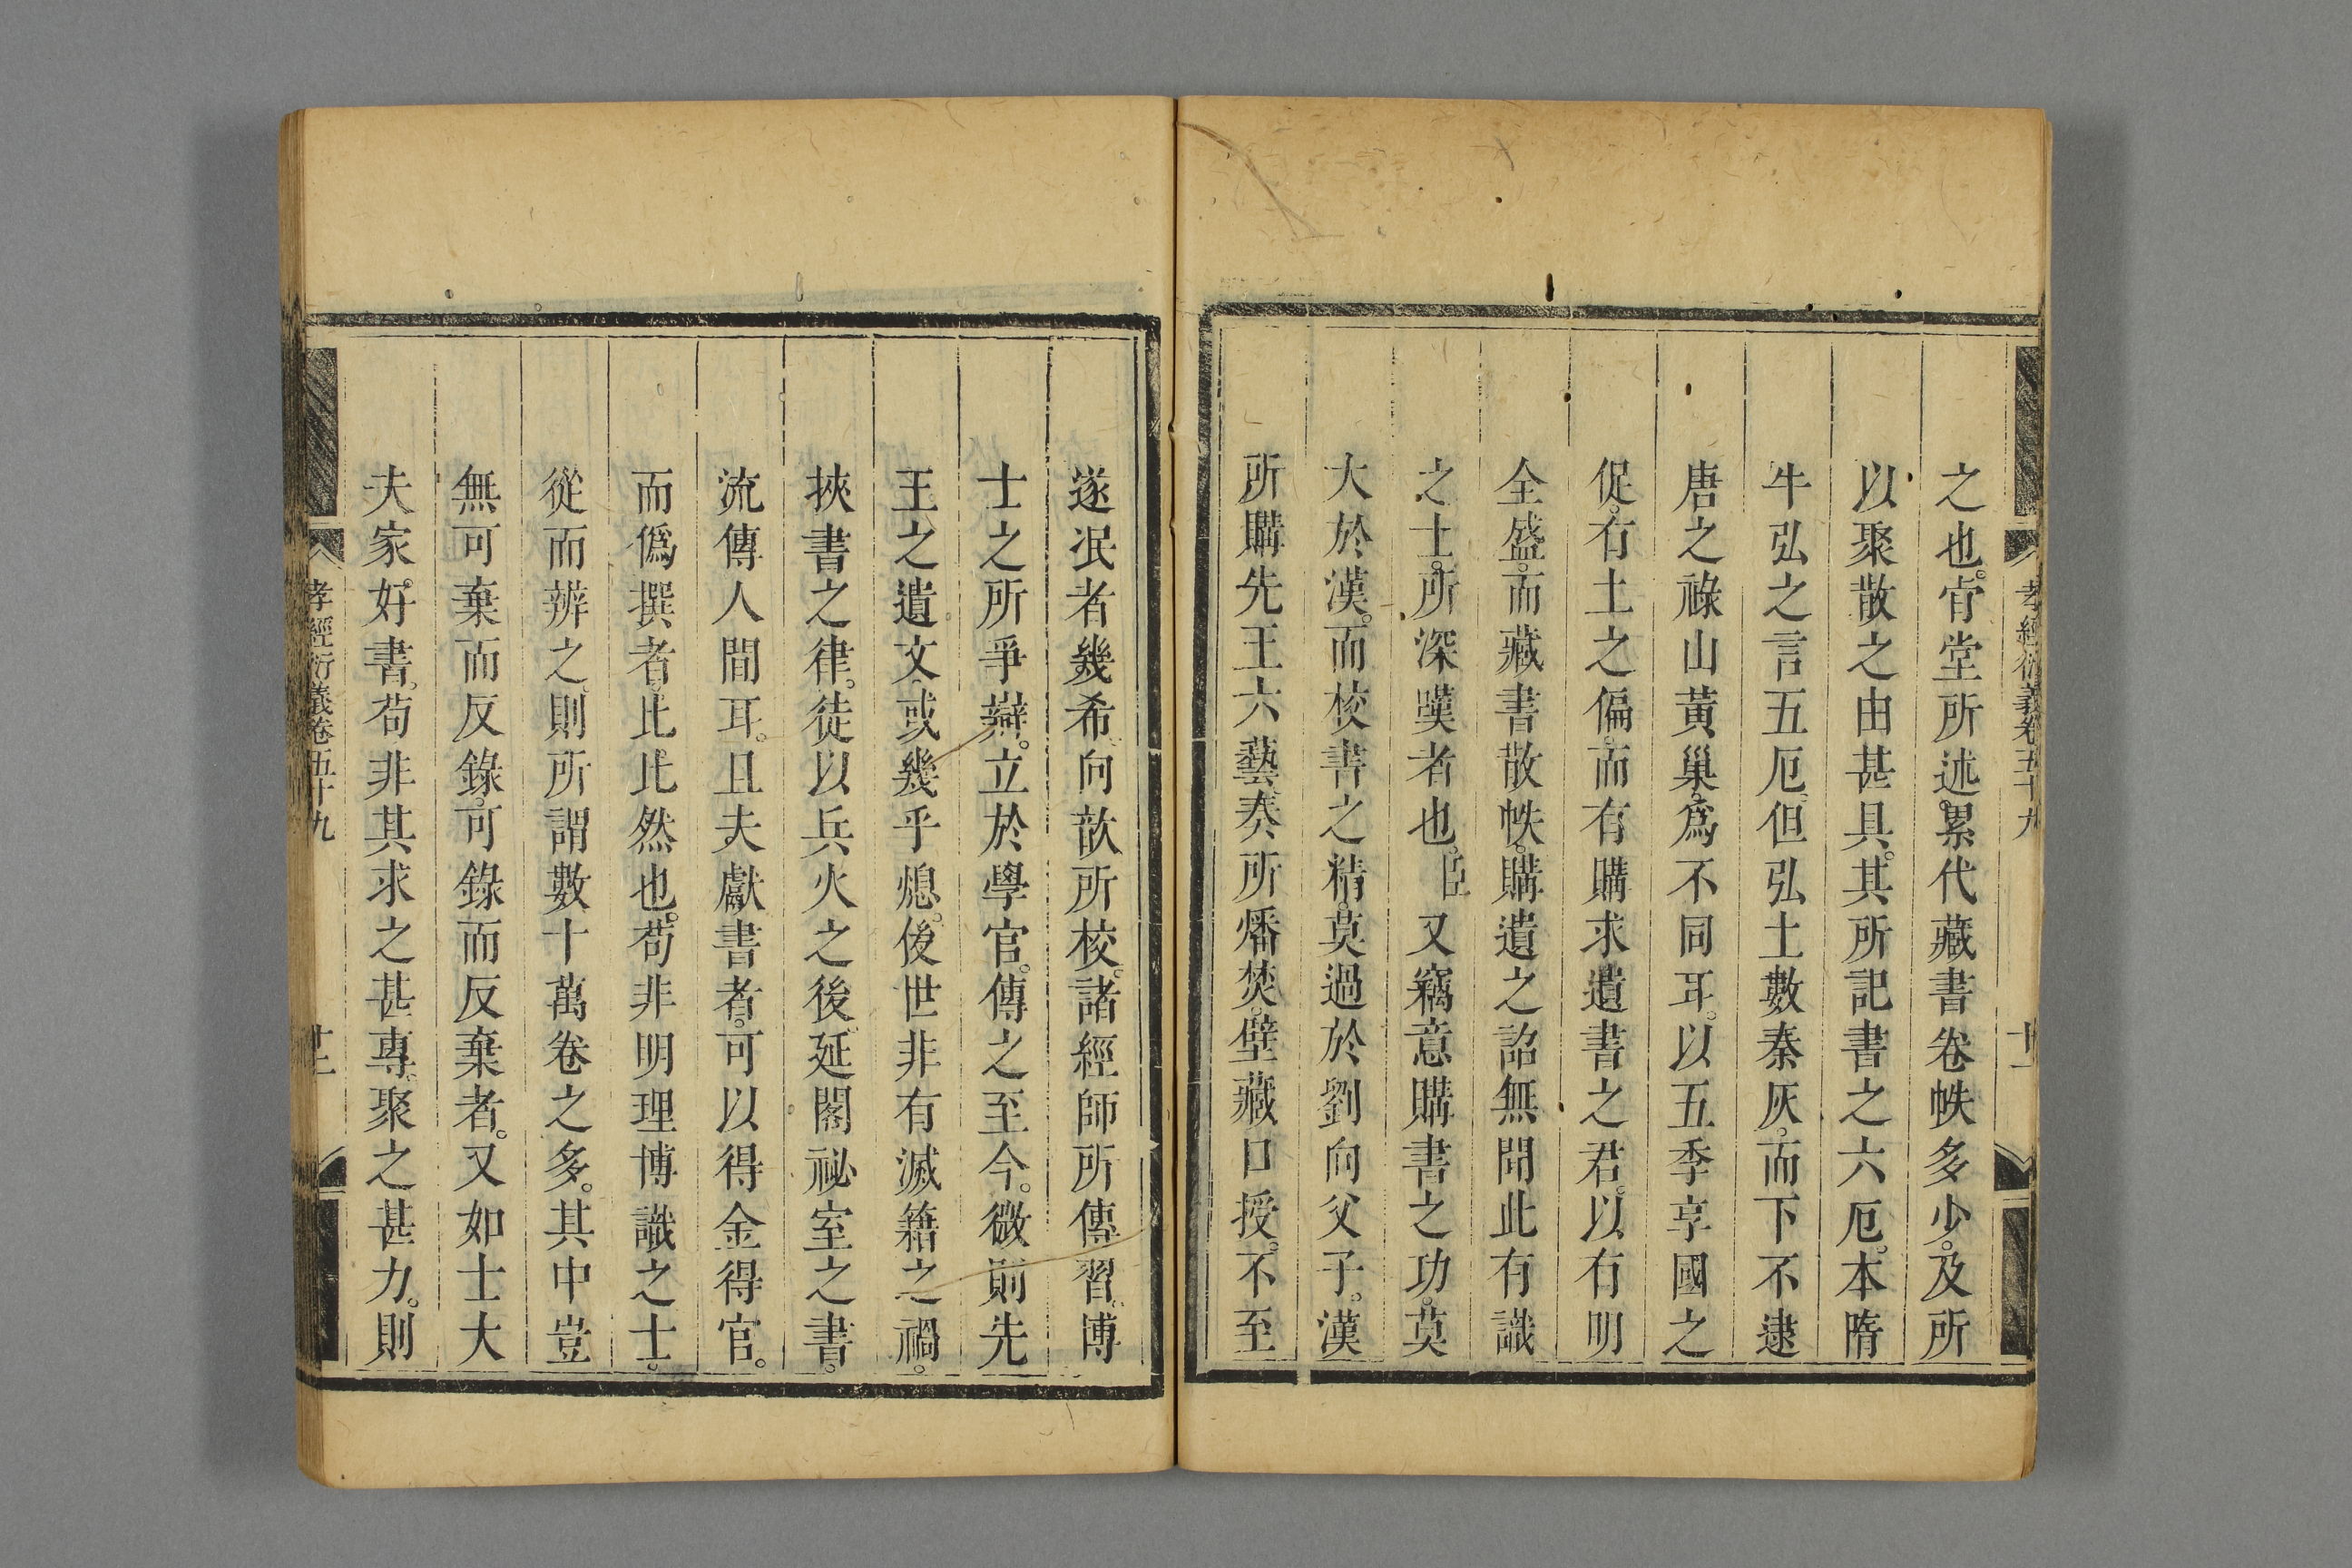 孝經衍義卷五十九
十一
之也。肯堂所述。累代藏書卷帙多少。及所
以聚散之由甚具。其所記書之六厄。本隋
牛弘之言五厄。但弘土數秦灰。而下不逮
唐之祿山黃巢。爲不同耳。以五季享國之
促。有土之偏。而有購求遺書之君。以有明
全盛。而藏書散帙。購遺之詔無聞。此有識
之士。所深嘆者也。臣又竊意購書之功。莫
大於漢。而校書之精。莫過於劉向父子。漢
所購先王六藝。秦所燔焚。壁藏口授。不至
遂泯者幾希。向歆所校。諸經師所傳習。博
士之所爭辯。立於學官。傳之至今。微前先
王之遺文。或幾乎熄。後世非有滅籍之禍。
挾書之律。徒以兵火之後。延閣祕室之書。
流傳人間耳。且夫獻書者。可以得金得官。
而僞撰者。比比然也。苟非明理博識之士。
從而辨之。則所謂數十萬卷之多。其中豈
無可棄而反錄。可錄而反棄者。又如士大
夫家。好書。苟非其求之甚專。聚之甚力。則
孝經衍義卷五十九